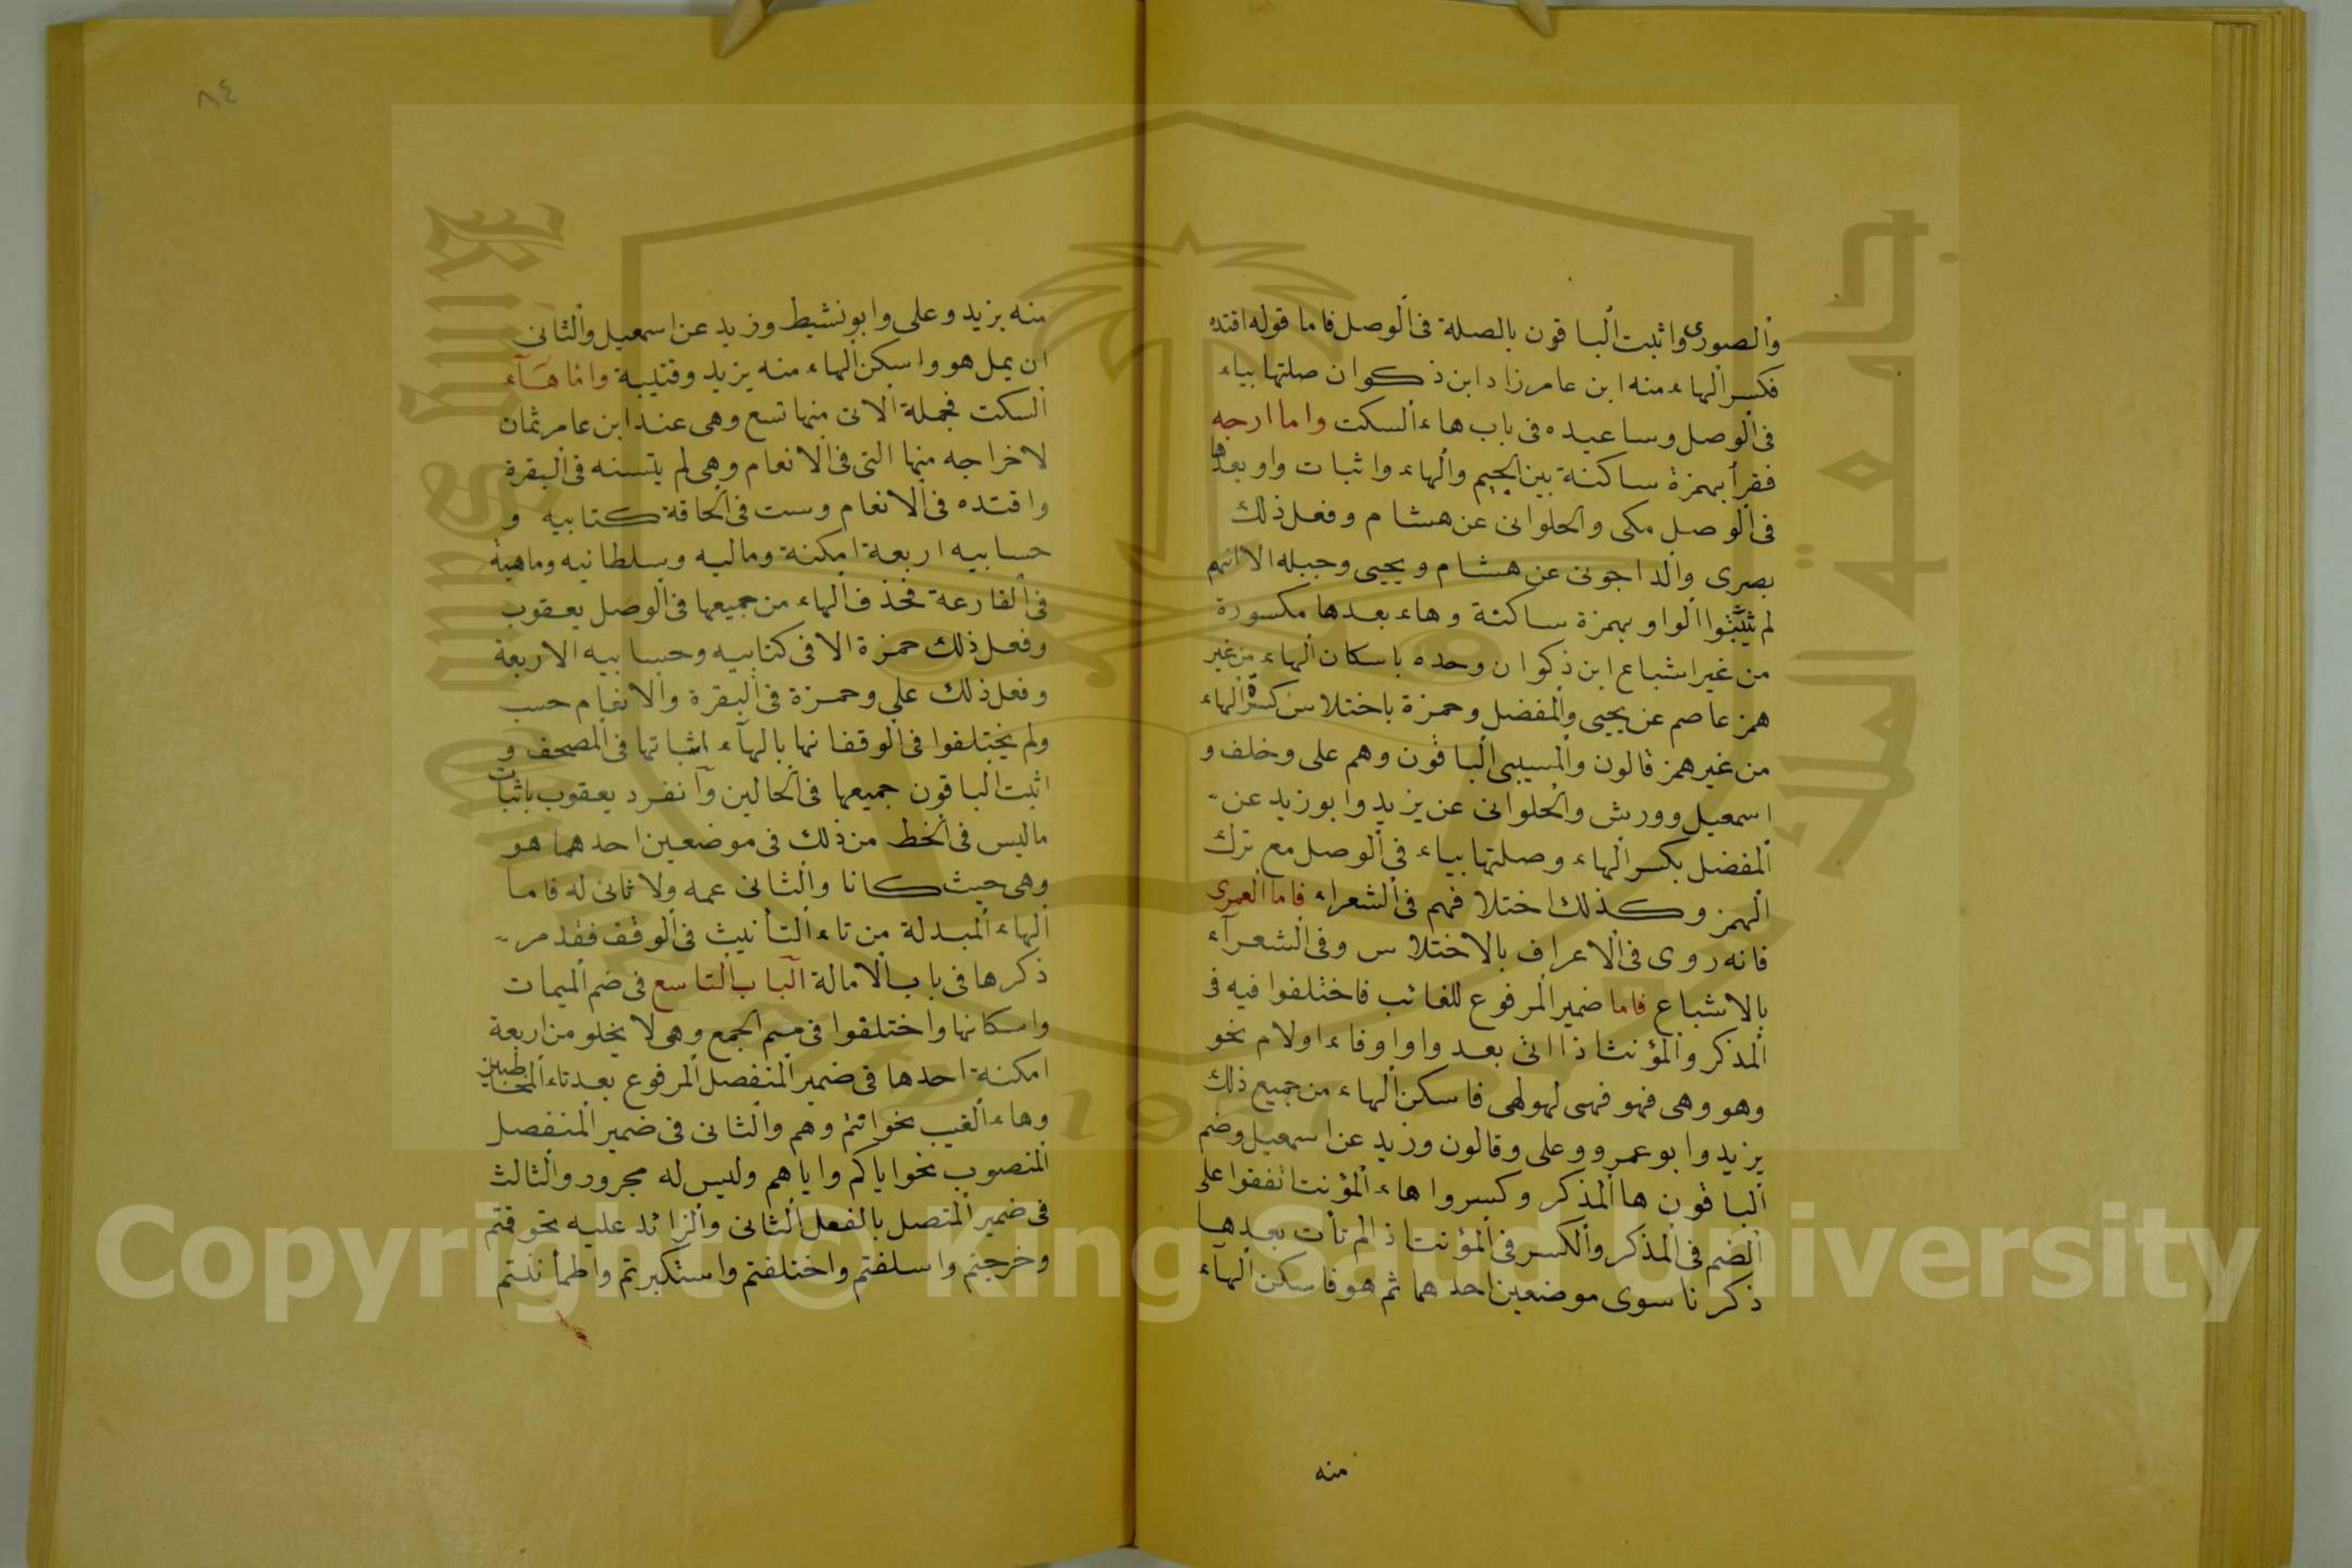 والصورى واثبت الباقون بالصلة فى الوصل فاما قوله اقتده
فكسر الهاء منه ابن عامر زاد ابن ذكوان صلتها بياء
فى الوصل وساعيده فى باب هاء السكت واما ارجه
فقرأ بهمزة ساكنة بين الجيم والهاء واثبات واو بعدها
فى الوصل مكى والحلوانى عن هشام وفعل ذلك
بصرى والداجونى عن هشام ويحيى وجبله الا انهم
لم يثبتوا الواو بهمزة ساكنة وهاء بعدها مكسورة
من غير اشباع ابن ذكوان وحده باسكان الهاء من غير
همز عاصم عن يحيى والمفضل وحمزة باختلاس كسرة الهاء
من غير همز قالون والمسيبى الباقون وهم على وخلف و
اسمعيل وورش والحلوانى عن يزيد وابو زيد عن
المفضل بكسر الهاء وصلتها بياء فى الوصل مع ترك
الهمز وكذلك اختلافهم فى الشعراء فاما العمرى
فانه روى فى الاعراف بالاختلاس وفى الشعرآء
بالاشباع فاما ضمير المرفوع للغائب فاختلفوا فيه فى
المذكر والمؤنث اذا اتى بعد واو اوفاء اولام نحو
وهو وهى فهو فهى لهو لهى فاسكن الهاء من جميع ذلك
يزيد وابو عمرو وعلى وقالون وزيد عن اسمعيل وضم
الباقون ها المذكر وكسروا هاء المؤنث اتفقوا على
الضم فى المذكر والكسر فى المؤنث اذ الم تأت بعدها
ذكرنا سوى موضعين احدهما ثم هو فاسكن الهآء
منه
٨٤
منه يزيد وعلى وابو نشيط وزيد عن اسمعيل والثانى
ان يمل هو واسكن الهاء منه يزيد وقتيبة واما هآء
السكت فجملة الاتى منها تسع وهى عند ابن عامر ثمان
لاخراجه منها التى فى الانعام وهى لم يتسنه فى البقرة
واقتده فى الانعام وست فى الحاقة كتابيه و
حسابيه اربعة امكنة وماليه وسلطانيه وماهيه
فى القارعة فحذف الهاء من جميعها فى الوصل يعقوب
وفعل ذلك حمزة الا فى كتابيه وحسابيه الاربعة
وفعل ذلك على وحمزة فى البقرة والانعام حسب
ولم يختلفوا فى الوقف انها بالهآء اثباتها فى المصحف و
اثبت الباقون جميعها فى الحالين وآنفرد يعقوب باثبات
ماليس فى الخط من ذلك فى موضعين احدهما هو
وهى حيث كانا والثانى عمه ولا ثانى له فاما
الهاء المبدلة من تاء التأنيث فى الوقف فقد مر
ذكرها فى باب الامالة الباب التاسع فى ضم الميمات
واسكانها واختلفوا فى ميم الجمع وهى لا يخلو من اربعة
امكنة احدها فى ضمير المنفصل المرفوع بعد تاء المخاطبين
وهاء الغيب نحو انتم وهم والثانى فى ضمير المنفصل
المنصوب نحو اياكم واياهم وليس له مجرور والثالث
فى ضمير المتصل بالفعل الثانى والزائد عليه نحو قتم
وخرجتم واسلفتم واختلفتم واستكبرتم واطمأننتم
جامعة الملك سعود
King Saud University
1957
Copyright © King Saud University